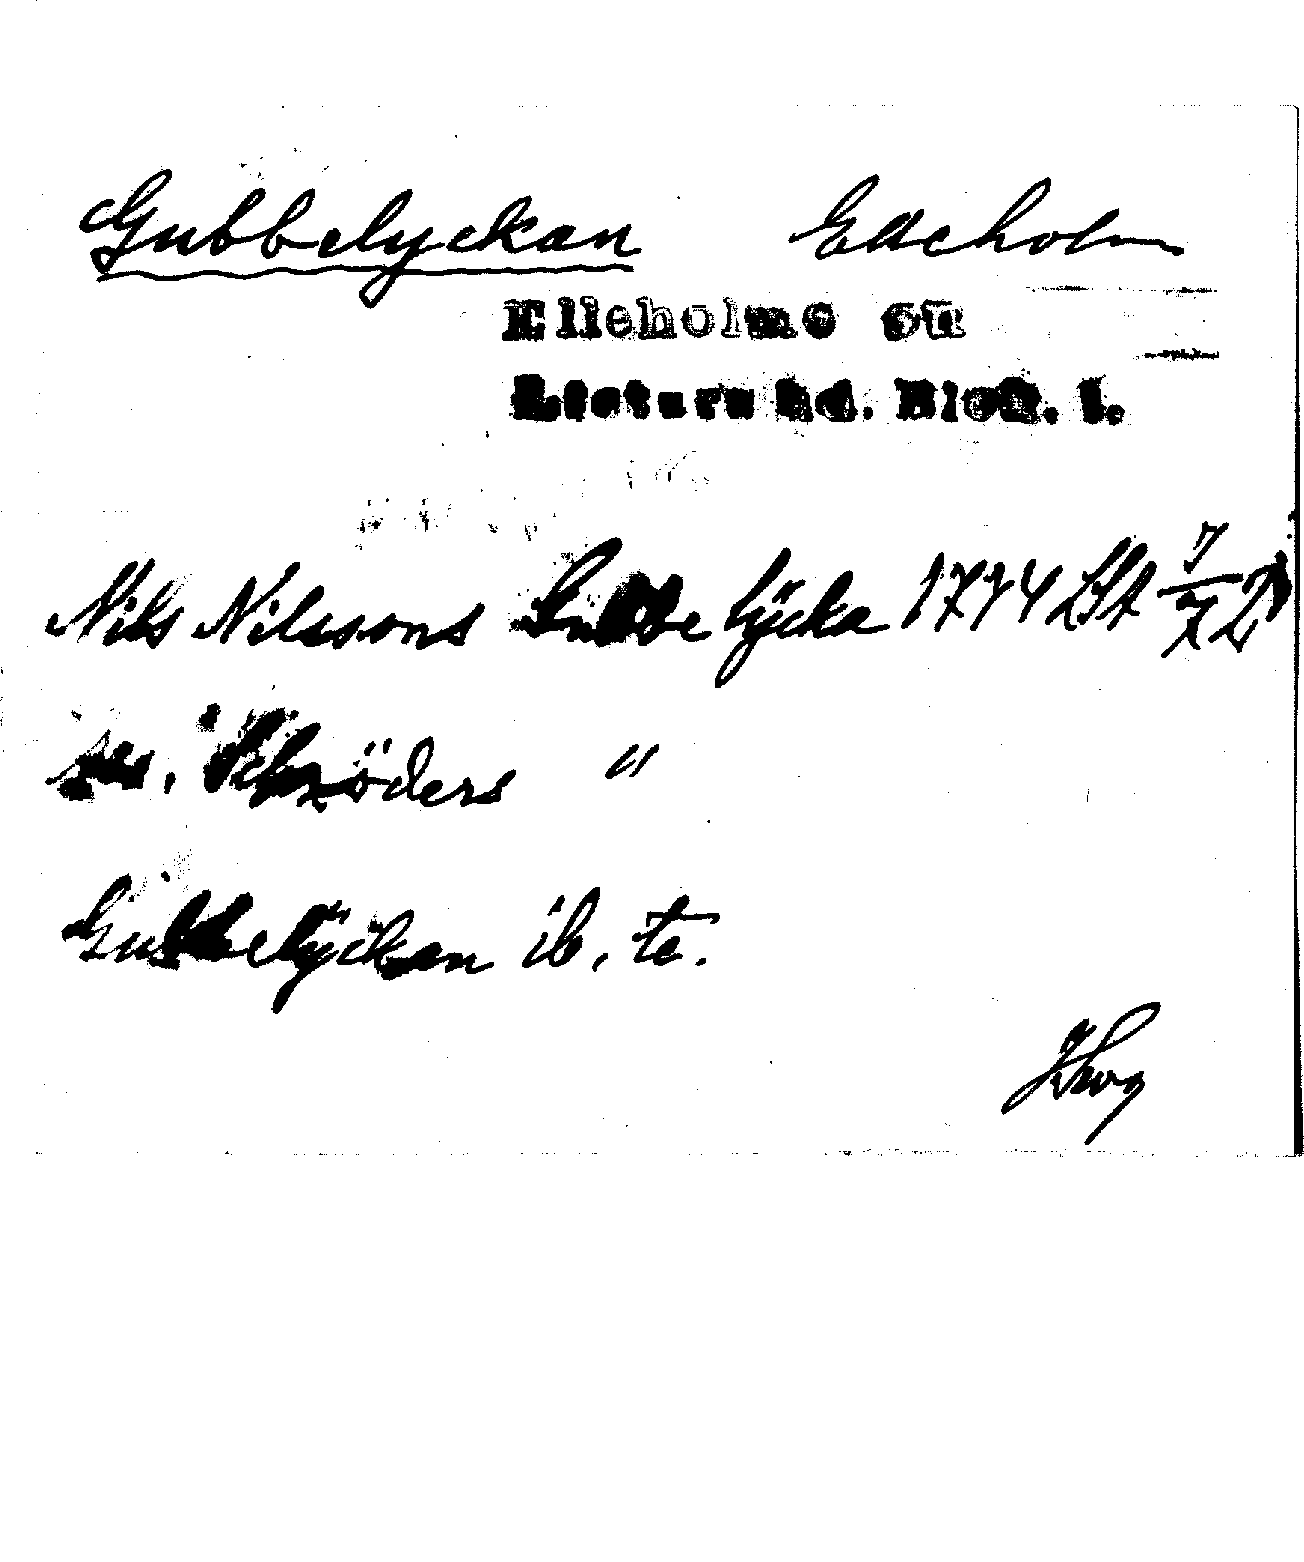 Gubbelyckan Elleholm
Elleholms sn
Listers hd. Blek. l.
Nils Nilssons Gubbe lÿcka 1774 LSA
Schröders "
Gubbelÿckan ib. te.